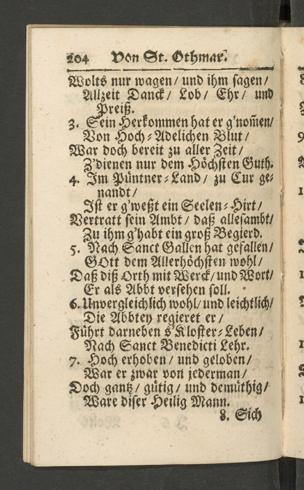 204 Von St. Othmar.
Wolts nur wagen / und ihm sagen /
Allzeit Danck / Lob / Ehr / und
Preiß.
3. Sein Herkommen hat er g'nom̃en /
Von Hoch-Adelichen Blut /
War doch bereit zu aller Zeit /
Z'dienen nur dem Höchsten Guth.
4. Im Püntner-Land / zu Cur ge-
nandt /
Ist er g'weßt ein Seelen-Hirt /
Vertratt sein Ambt / daß allesambt /
Zu ihm g'habt ein groß Begierd.
5. Nach Sanct Gallen hat gefallen /
GOtt dem Allerhöchsten wohl /
Daß diß Orth mit Werck / und Wort /
Er als Abbt versehen soll.
6. Unvergleichlich wohl / und leichtlich /
Die Abbtey regieret er /
Führt darneben s'Kloster-Leben /
Nach Sanct Benedicti Lehr.
7. Hoch erhoben / und geloben /
War er zwar von jederman /
Doch gantz / gütig / und demüthig /
Ware diser Heilig Mann.
8. Sich